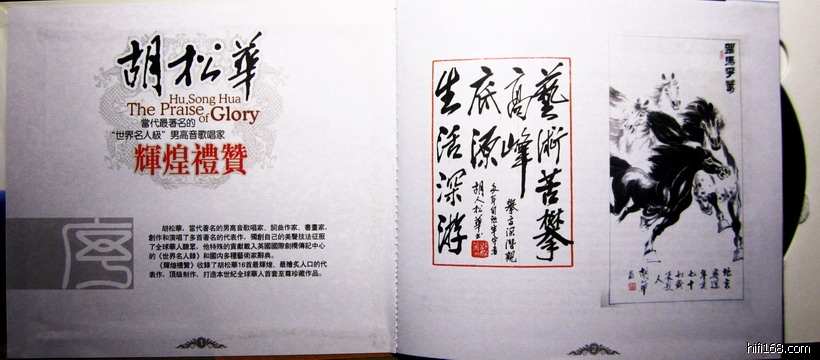 胡松華
Hu Song Hua
The Praise of Glory
當代最著名的
"世界名人級"男高音歌唱家
輝煌禮贊
胡松華，當代著名的男高音歌唱家，詞曲作家、書畫家，
創作和演唱了多首著名的代表作，獨創自己的美聲技法征服
了全球華人聽眾，他特殊的貢獻載入英國國際劍橋傳記中心
的《世界名人錄》和國内多種藝術家辭典。
《輝煌禮贊》收錄了胡松華16首最輝煌、最膾炙人口的代
表作，頂級制作，打造本世紀全球華人首套至尊珍藏作品。
1
藝術苦攀
高峰
底源
生活深游
胡人松華書
2
hifi168.com